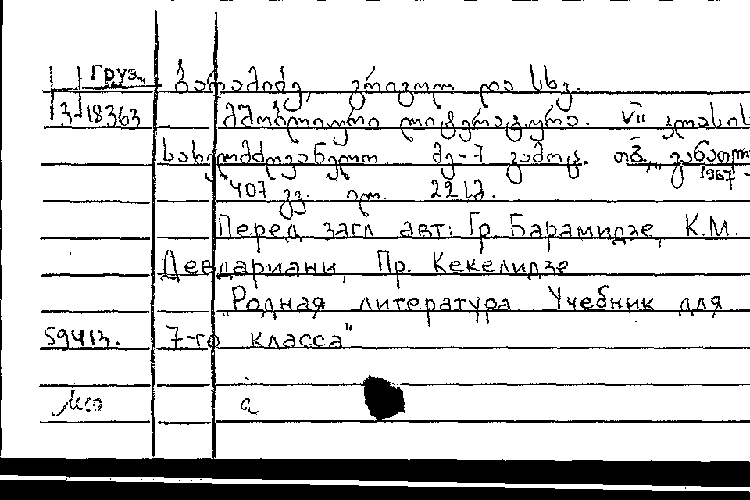 Груз. ბარამიძე, გრიგოლ და სხვ.
3-18363 მშობლიური ლიტერატურა. VII კლასის
სახელმძღვანელო. მე-7 გამოც. თბ., განათლ
1967
407 გვ. ილ. 221ა.
Перед загл авт: Гр. Барамидзе, К.М.
Девдариани, Пр. Кекелидзе
"Родная литература. Учебник для
59413. 7-го класса"